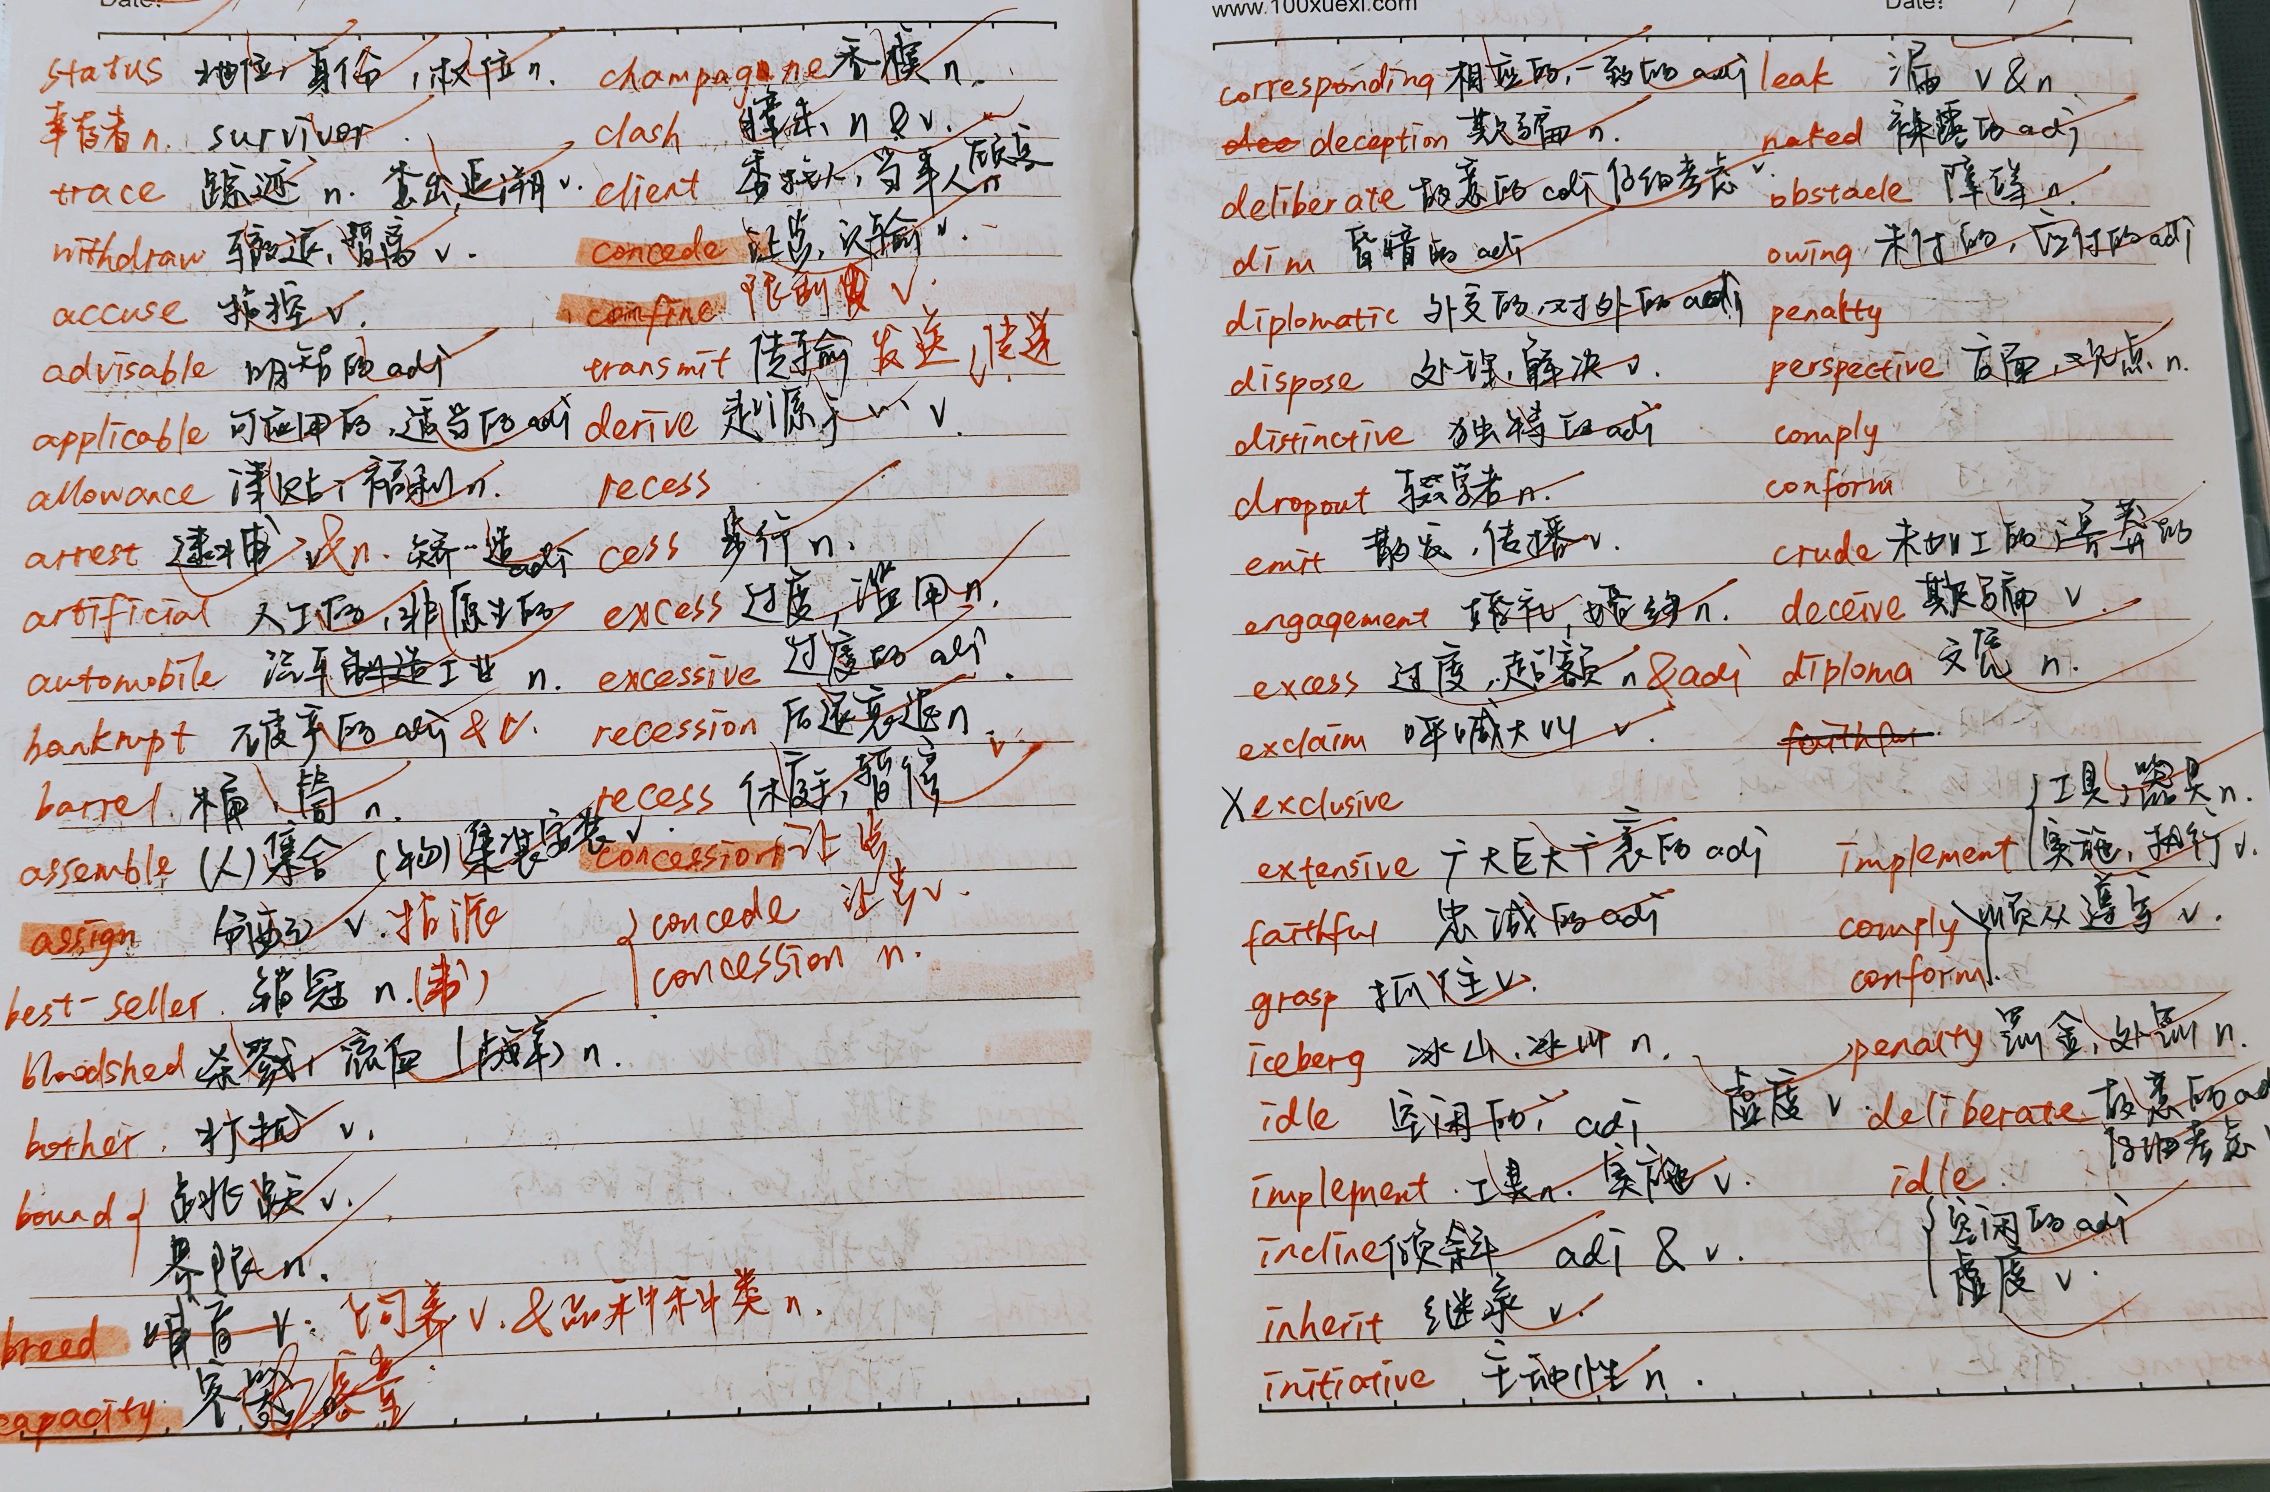 Date:
status 地位，身份，权位 n.
幸存者 n. survivor
trace 踪迹 n. 查出，追溯 v.
withdraw 撤退，暂离 v.
accuse 指控 v.
advisable 明智的 adj
applicable 可应用的，适当的 adj
allowance 津贴，福利 n.
arrest 逮捕 v & n.
artificial 人工的，非原生的
automobile 汽车工业 n.
bankrupt 破产的 adj & v.
barrel. 桶，筒 n.
assemble (人)集合 (物)集装安装 v.
assign 分配 v. 指派
best-seller. 销冠 n.(书)
bloodshed 杀戮，流血(战争) n.
bother. 打扰 v.
bound 跳跃 v.
界限 n.
breed 哺育 v. 饲养 v. & 品种种类 n.
capacity. 容量
champagne 香槟 n.
clash 撞击 n & v.
client 委托人，当事人 顾客 n
concede 让步，认输 v.
confine 限制 v.
transmit 传输 发送，传送
derive 起源于… v.
recess
cess 步行 n.
excess 过度，滥用 n.
excessive 过度的 adj.
recession 后退衰退 n.
recess 休庭，暂停 v
concession 让步
concede 让步 v.
concession n.
www.100xuexi.com
Date:
corresponding 相应的，一致的 adj
deception 欺骗 n.
deliberate 故意的 adj 仔细考虑 v.
dim 昏暗的 adj
diplomatic 外交的，对外的 adj
dispose 处理，解决 v.
distinctive 独特的 adj
dropout 辍学者 n.
emit 散发，传播 v.
engagement 婚礼，婚约 n.
excess 过度，超额 n & adj
exclaim 呼喊大叫 v.
X exclusive
extensive 广大巨大广袤的 adj
faithful 忠诚的 adj
grasp 抓住 v.
iceberg 冰山，冰川 n.
idle 空闲的， adj 虚度 v.
implement. 工具 n. 实施 v.
incline 倾斜 adj & v.
inherit 继承 v.
initiative 主动性 n.
leak 漏 v & n.
naked 裸露的 adj
obstacle 障碍 n.
owing 未付的，应付的 adj
penalty
perspective 方面，观点 n.
comply
conform
crude 未加工的，粗糙的
deceive 欺骗 v.
diploma 文凭 n.
faithful
工具，器具 n.
implement 实施，执行 v.
comply 顺从遵守 v.
conform.
penalty 罚金，处罚 n.
deliberate 故意的 adj
仔细考虑
idle.
空闲的 adj
虚度 v.